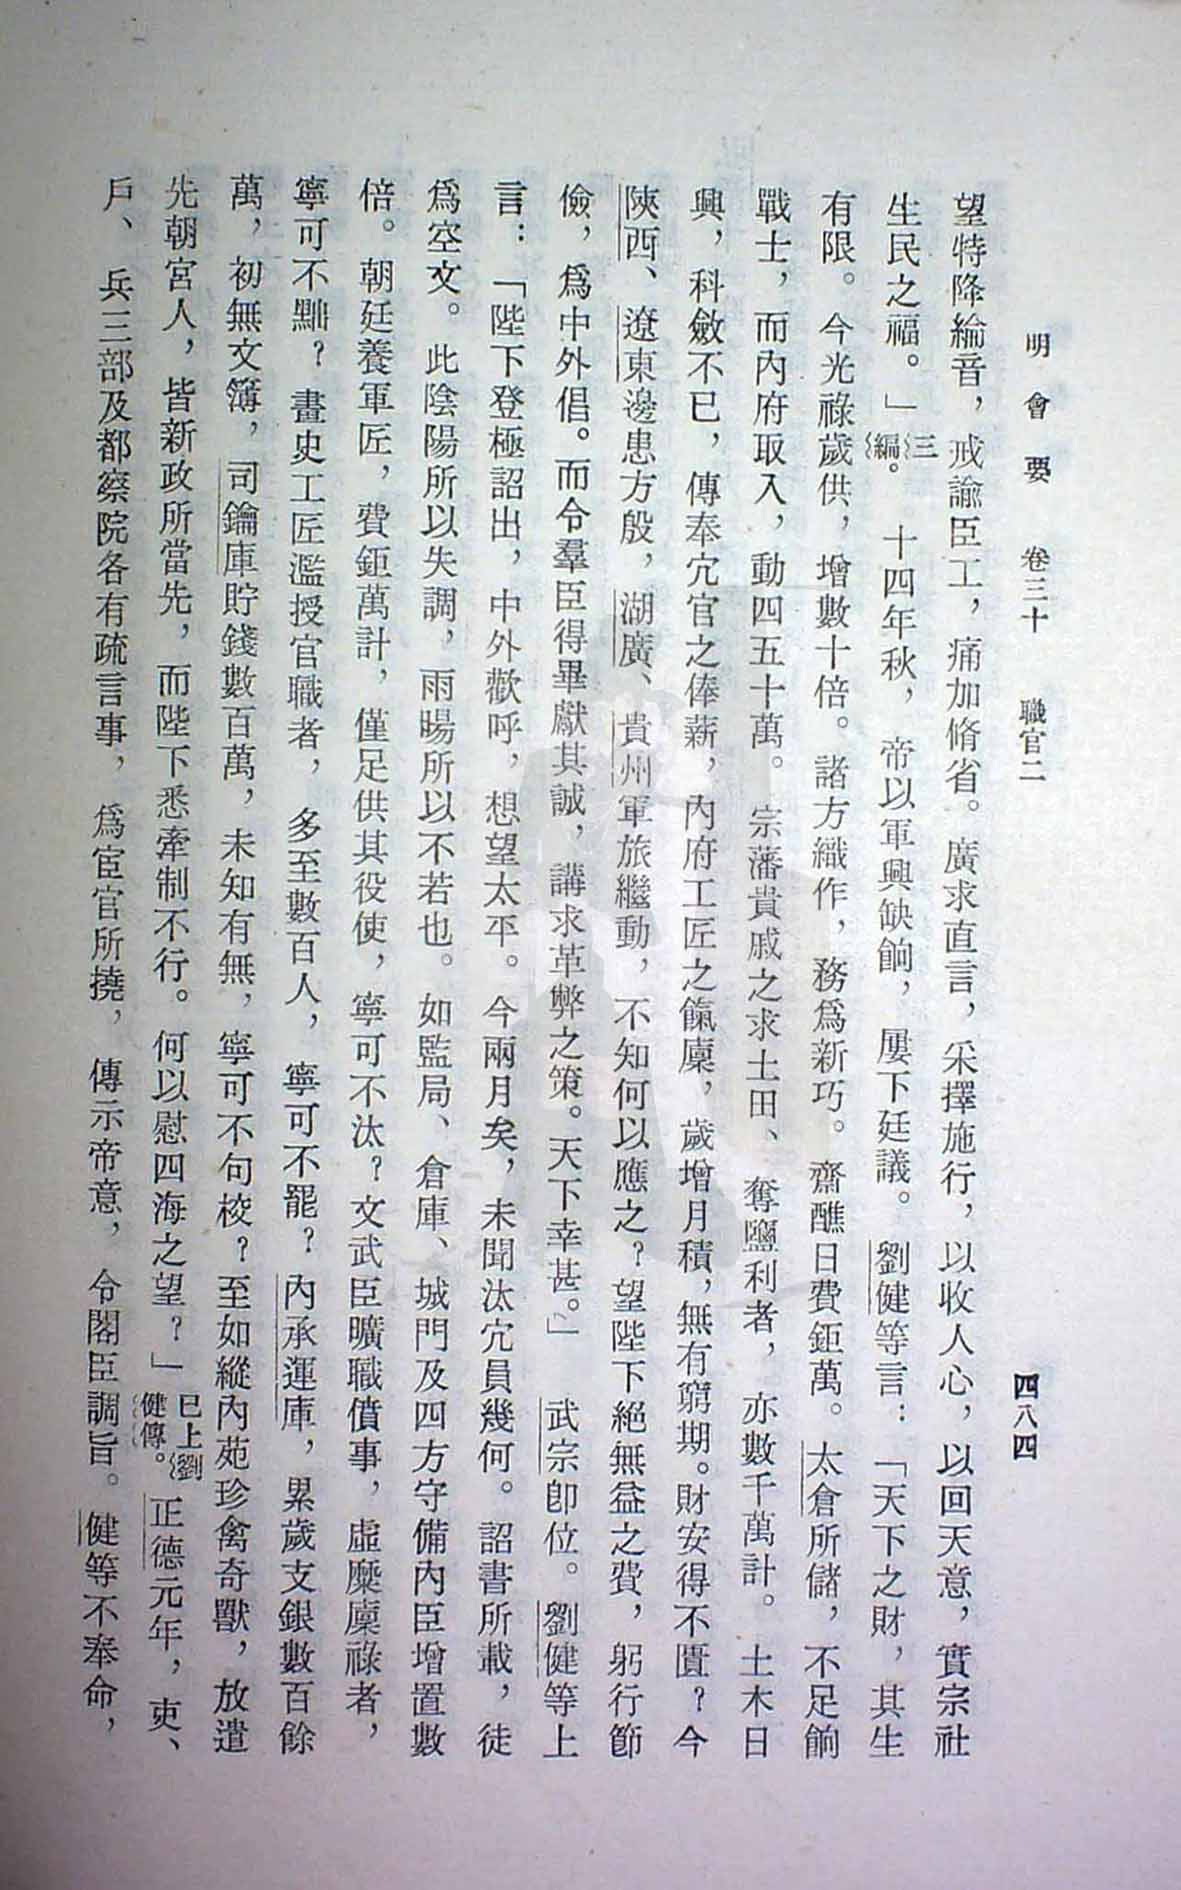 明會要　卷三十　職官二　四八四
望特降綸音，戒諭臣工，痛加脩省。廣求直言，采擇施行，以收人心，以回天意，實宗社
生民之福。」三編。　十四年秋，帝以軍興缺餉，屢下廷議。劉健等言：「天下之財，其生
有限。今光祿歲供，增數十倍。諸方織作，務爲新巧。齋醮日費鉅萬。太倉所儲，不足餉
戰士，而內府取入，動四五十萬。宗藩貴戚之求土田、奪鹽利者，亦數千萬計。土木日
興，科斂不已，傳奉宂官之俸薪，內府工匠之餼廩，歲增月積，無有窮期。財安得不匱？今
陝西、遼東邊患方殷，湖廣、貴州軍旅繼動，不知何以應之？望陛下絕無益之費，躬行節
儉，爲中外倡。而令羣臣得畢獻其誠，講求革弊之策。天下幸甚。」　武宗卽位。劉健等上
言：「陛下登極詔出，中外歡呼，想望太平。今兩月矣，未聞汰宂員幾何。詔書所載，徒
爲空文。此陰陽所以失調，雨暘所以不若也。如監局、倉庫、城門及四方守備內臣增置數
倍。朝廷養軍匠，費鉅萬計，僅足供其役使，寧可不汰？文武臣曠職僨事，虛糜廩祿者，
寧可不黜？畫史工匠濫授官職者，多至數百人，寧可不罷？內承運庫，累歲支銀數百餘
萬，初無文簿，司鑰庫貯錢數百萬，未知有無，寧可不句校？至如縱內苑珍禽奇獸，放遣
先朝宮人，皆新政所當先，而陛下悉牽制不行。何以慰四海之望？」已上劉健傳。　正德元年，吏、
戶、兵三部及都察院各有疏言事，爲宦官所撓，傳示帝意，令閣臣調旨。健等不奉命，